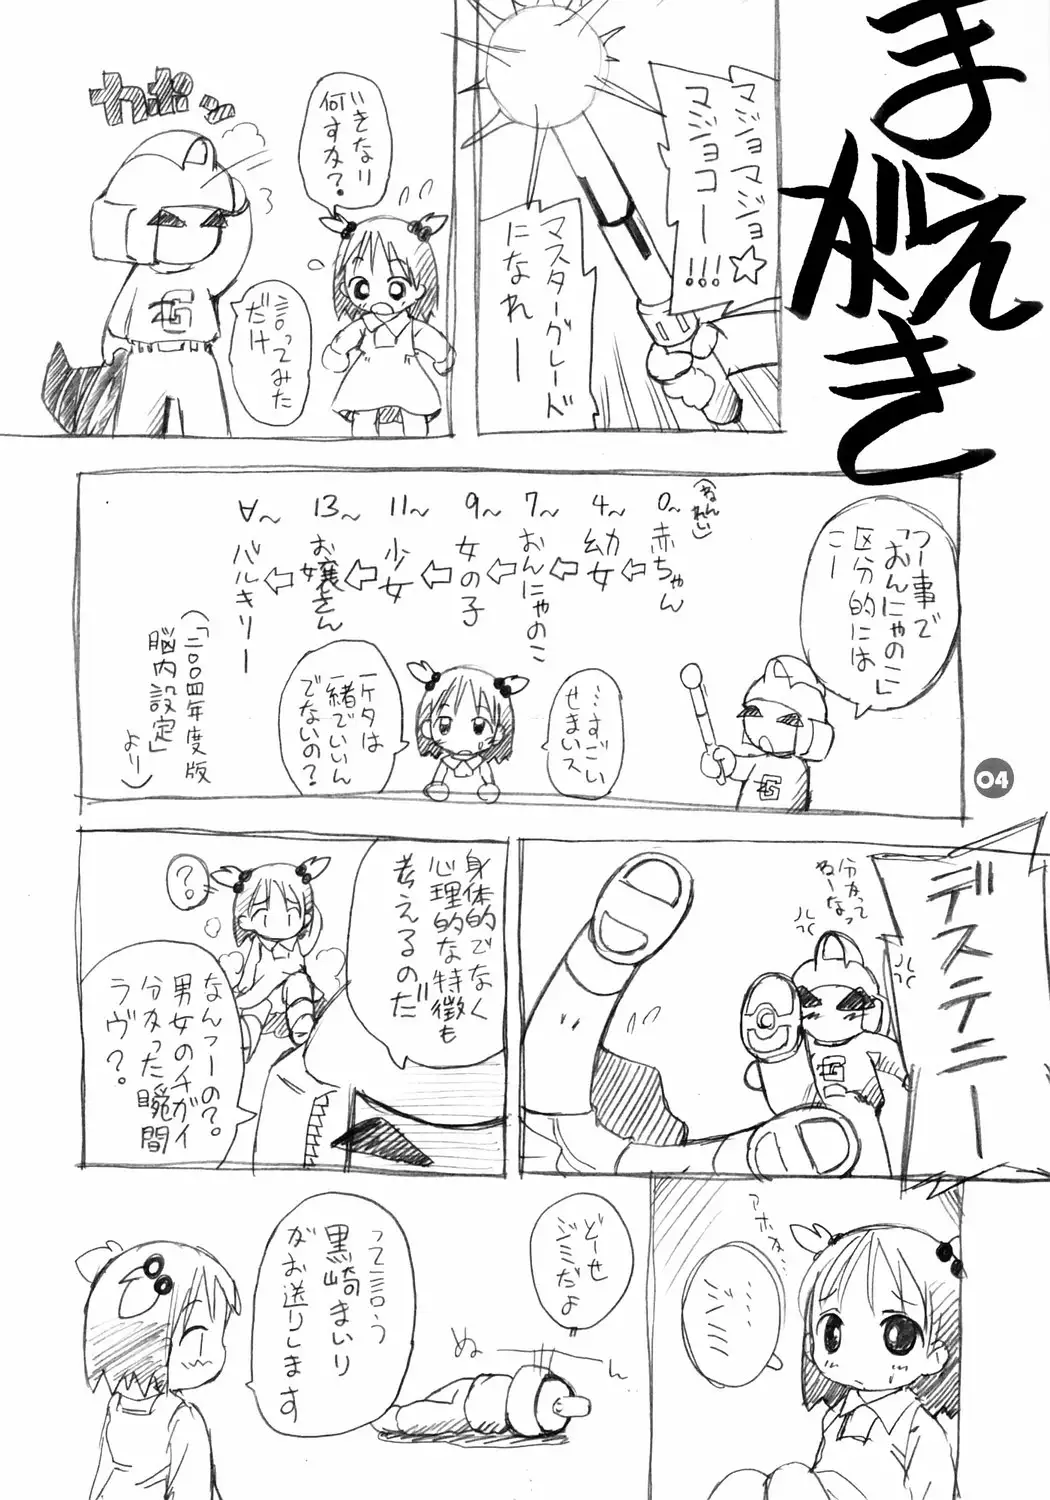 まがえき
マジョマジョ
マジョコー
!!!☆
マスターグレード
になれー
いきなり
何すか?
言ってみた
だけ
カポッ
G
つー事で
「おんにゃのこ」
区分的には
こー
(ねんれい)
0〜 赤ちゃん
4〜 幼女
7〜 おんにゃのこ
9〜 女の子
11〜 少女
13〜 お嬢さん
∀〜 バルキリー
(「二〇〇四年度版
脳内設定」
より)
…すごい
せまいス
一ケタは
一緒でいいん
でないの?
G
04
デスティニー
分かって
ねーなっ
G
身体的でなく
心理的な特徴も
考えるのだ
?
なんつーの?。
男女のチガイ
分かった瞬間
ラヴ?。
アホか…
ジミ
どーせ
ジミだよ
ぬーん
って言う
黒崎まいり
がお送りします